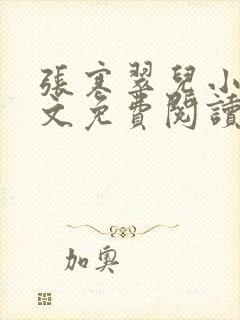 張寒翠兒小
文免費閱讀
加奧